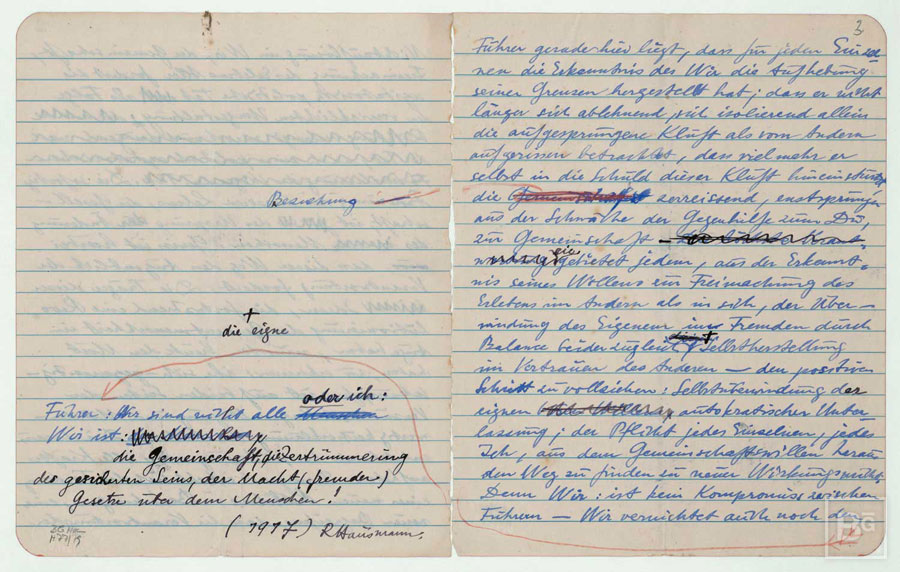 Beziehung
die eigne
oder ich:
Führer: Wir sind nicht alle
Wir ist:
die Gemeinschaft, die Zertrümmerung
des gesicherten Seins, der Macht (fremder)
Gesetze über dem Menschen!
(1917) RHausmann.
3
Führer gerade hier liegt, dass für jeden Einzel
nen die Erkenntnis des Wir die Aufhebung
seiner Grenzen hergestellt hat; dass er nicht
länger sich ablehnend, sich isolierend allein
die aufgesprungene Kluft als vom Andern
aufgerissen betrachtet, dass viel mehr er
selbst in die Schuld dieser Kluft hineinstürzt
die Gemeinschaft zerreissend, entsprungen
aus der Schwäche der Gegenhilfe zum Du,
zur Gemeinschaft —
sie gebietet jedem, aus der Erkennt-
nis seines Wollens zur Freimachung des
Erlebens im Andern als in sich, der Über-
windung des Eigenen im Fremden durch
Balance beider zugleich Selbstherstellung
im Vertrauen des Anderen — den positiven
Schritt zu vollziehen: Selbstüberwindung der
eignen autokratischer Unter-
lassung; der Pflicht jedes Einzelnen, jedes
Ich, aus dem Gemeinschaftswillen heraus
den Weg zu finden zu neuer
Denn Wir: ist kein Kompromiss zwischen
Führern — Wir vernichtet auch noch den